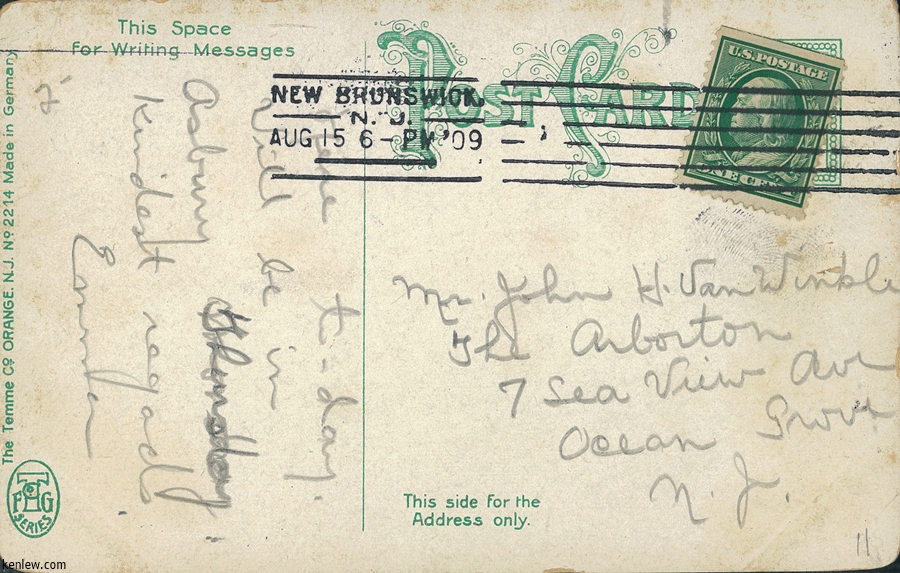 This Space
for Writing Messages
The Temme Co ORANGE. N.J. No 2214 Made in Germany
TFHG
SERIES
Here t-day.
Will be in
Asbury Thursday.
Kindest regards
POST CARD
NEW BRUNSWICK,
N. J.
AUG 15 6 - PM '09
U.S. POSTAGE
ONE CENT
Mr. John H. Van Winkle
The Arborton
7 Sea View Ave
Ocean Grove
N. J.
This side for the
Address only.
11
kenlew.com